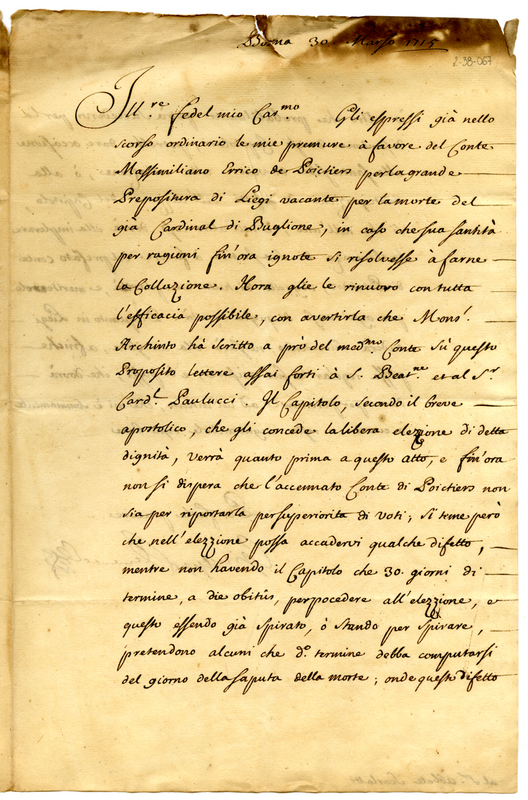 Bonna 30. Marzo 1715
2-38-067
Ill.re fedel mio Car.mo Gli espressi già nello
scorso ordinario le mie premure à favore del Conte
Massimiliano Errico de Poictiers per la grande
Prepositura di Liegi vacante per la morte del
già Cardinal di Buglione, in caso che sua santità
per ragioni fin'ora ignote si risolvesse à farne
la Collazione. Hora glie le rinuovo con tutta
l'efficacia possibile, con avertirla che Mons.r
Archinto hà scritto a prò del med.mo Conte sù questo
Proposito lettere assai forti à S. Beat.ne et al S.r
Card.l Paulucci. Il Capitolo, secondo il breve
apostolico, che gli concede la libera elezzione di detta
dignità, verrà quanto prima a questo atto, e fin'ora
non si dispera che l'accennato Conte di Poictiers non
sia per riportarla per superiorità di voti; si teme però
che nell'elezzione possa accadervi qualche difetto,
mentre non havendo il Capitolo che 30. giorni di
termine, a die obitus, per pocedere all'elezzione, e
questo essendo già spirato, ò stando per spirare,
pretendono alcuni che d.o termine debba computarsi
del giorno della saputa della morte; onde questo difetto